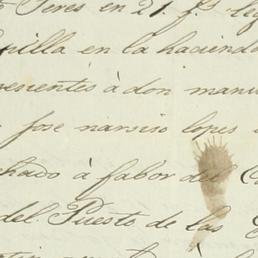 Jeres en 21. f.s
silla en la hacienda
resientes á don manu
jose narsiso lopes
chado á fabor del C
del Puesto de las